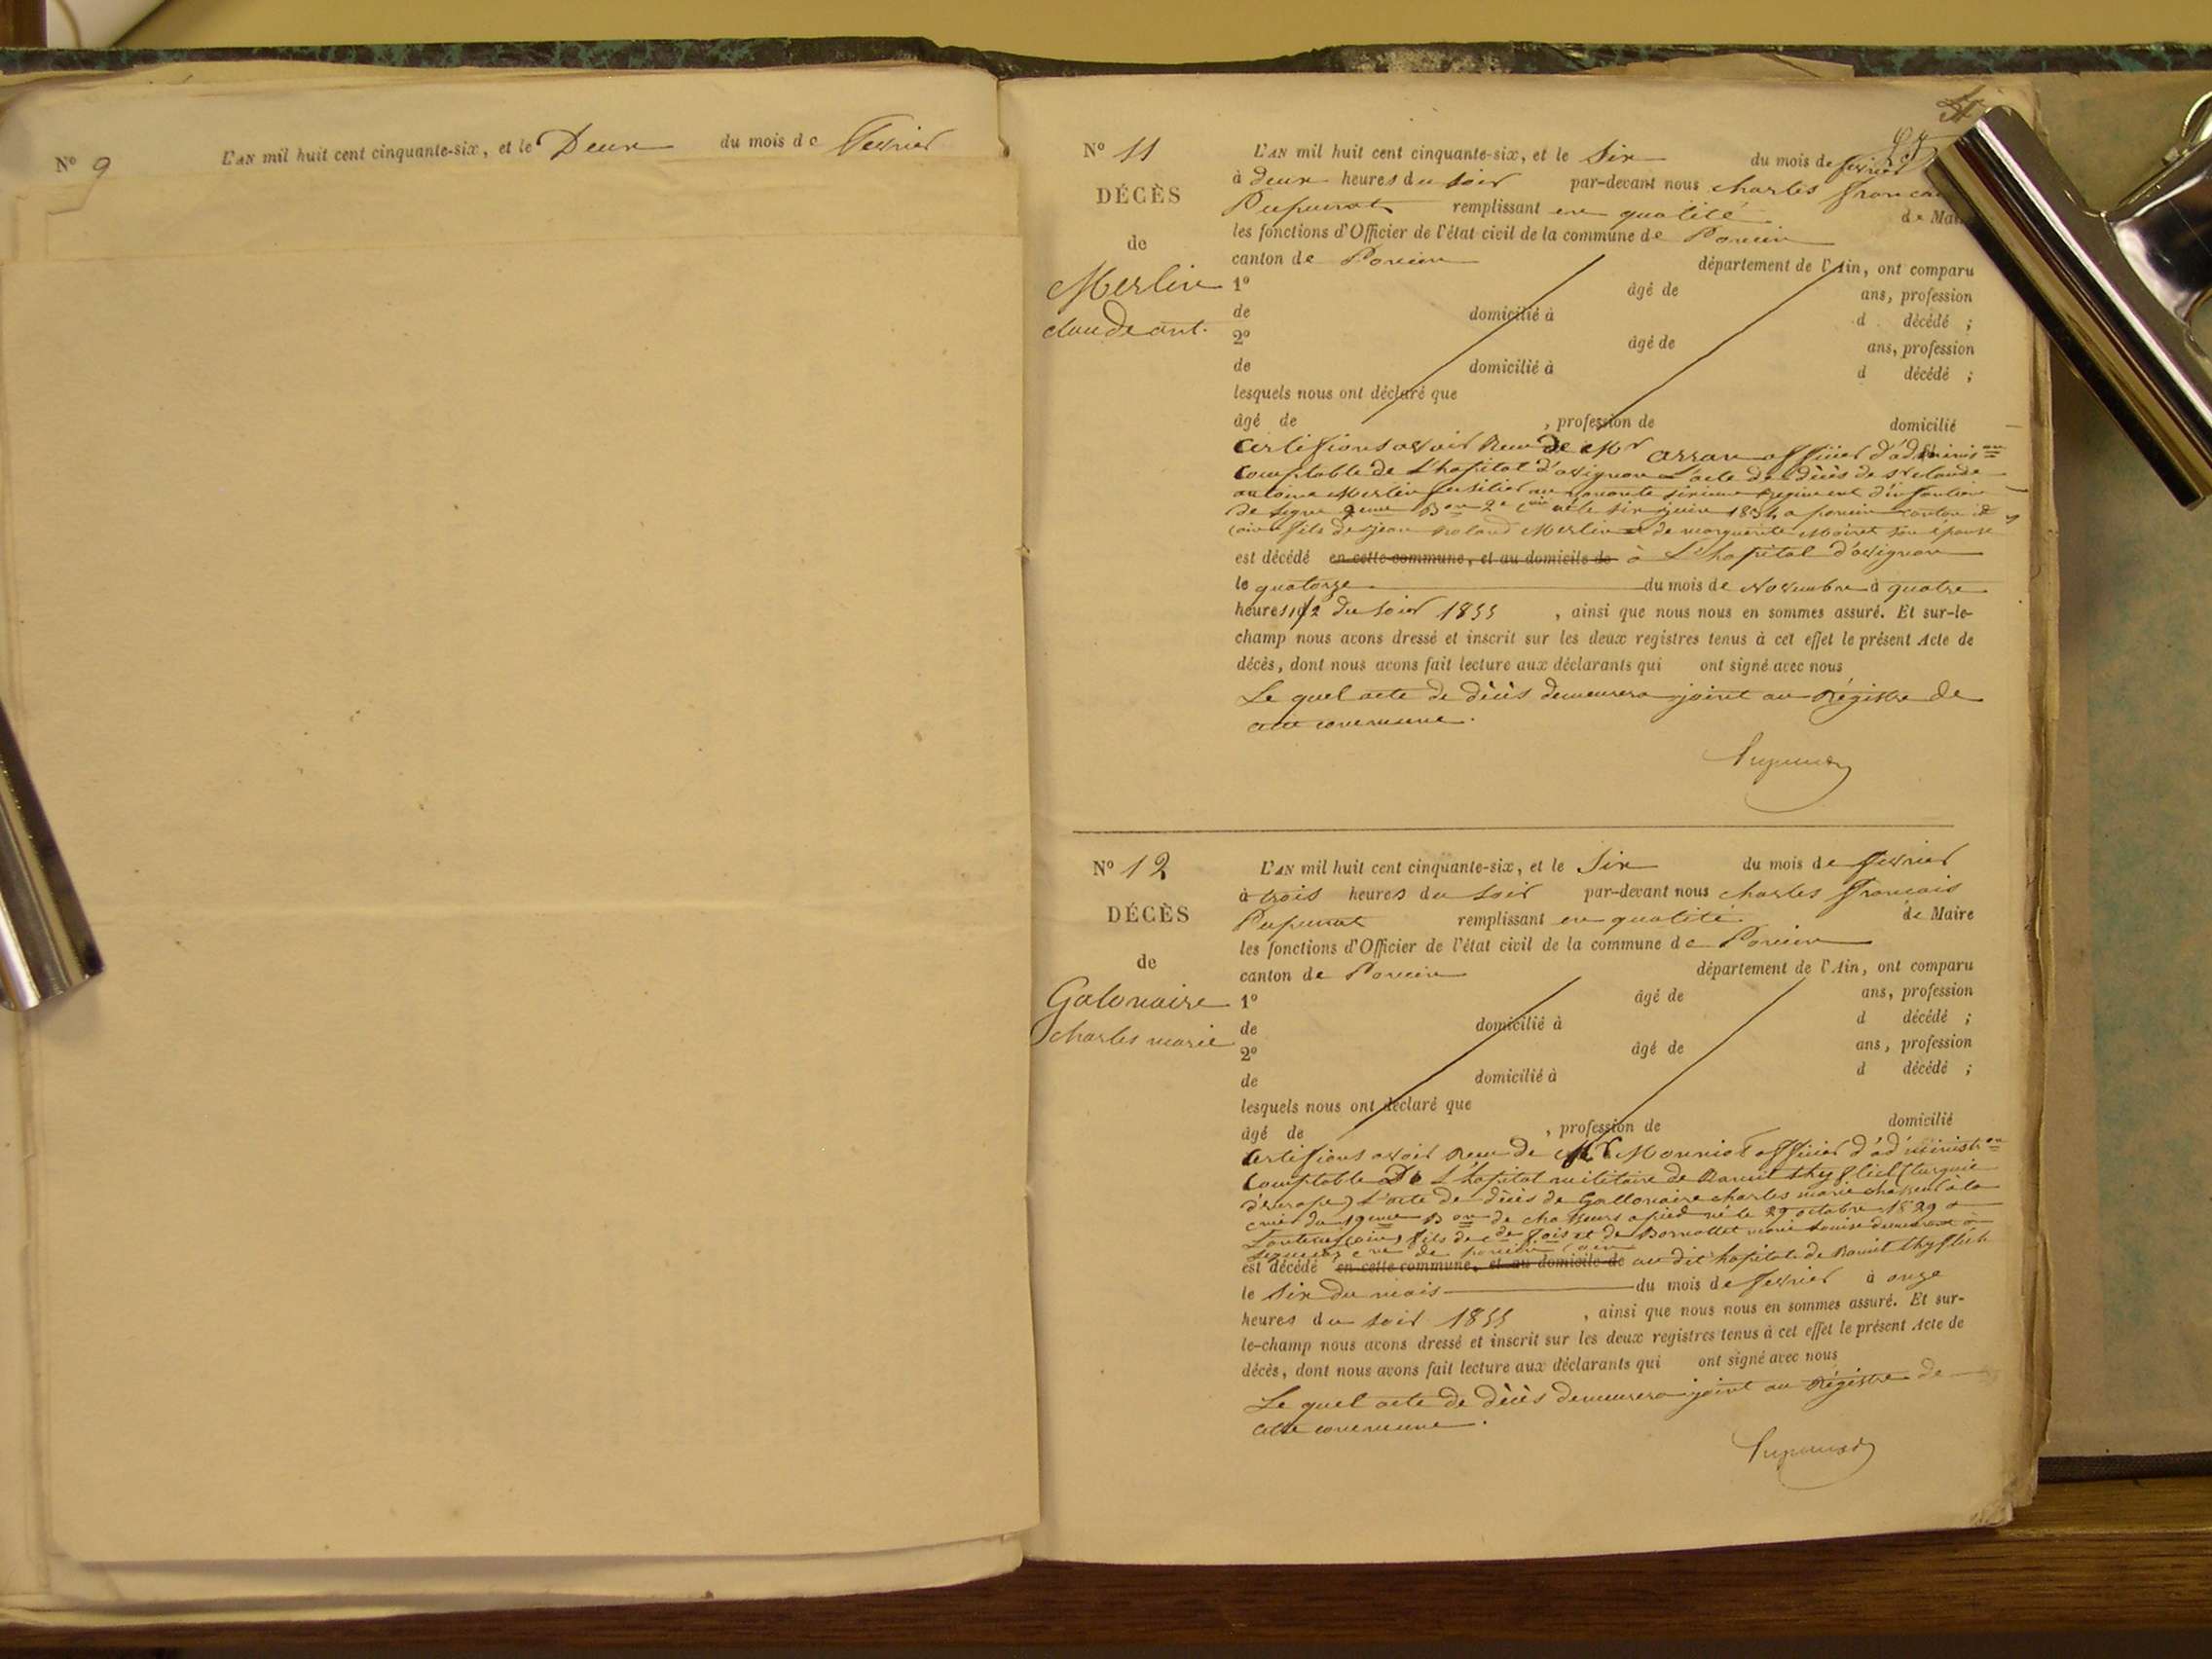 N° 9 L'AN mil huit cent cinquante-six, et le Deux du mois de Fevrier
N° 11 L'AN mil huit cent cinquante-six, et le Six du mois de fevrier
à deux heures du soir par-devant nous charles francais
DÉCÈS
remplissant en qualité de Mai
de
les fonctions d'Officier de l'état civil de la commune de Poncin
canton de Poncin département de l'Ain, ont comparu
Merlin
claude ant.
1° âgé de ans, profession
de domicilié à d décédé ;
2° âgé de ans, profession
de domicilié à d décédé ;
lesquels nous ont déclaré que
âgé de , profession de domicilié
Certifions avoir Reçu de Mr officier d'adminis on
Comptable de L'hopital d'avignon L'acte de décès de Sr claude
antoine Merlin fusilier au sixieme Regiment d'infanterie
de ligne Bon 2e Cnie né le six juin 1834 a poncin canton d
fils de jean Roland Merlin et de marguerite Moiret son épouse
est décédé en cette commune, et au domicile de à L'hopital d'avignon
le quatorze du mois de Novembre à quatre
heures 1/2 du soir 1855 , ainsi que nous nous en sommes assuré. Et sur-le-
champ nous avons dressé et inscrit sur les deux registres tenus à cet effet le présent Acte de
décès, dont nous avons fait lecture aux déclarants qui ont signé avec nous
Le quel acte de décès demeurera joint au Régistre de
cette commune.
N° 12 L'AN mil huit cent cinquante-six, et le Six du mois de fevrier
à trois heures du soir par-devant nous charles francais
DÉCÈS
remplissant en qualité de Maire
les fonctions d'Officier de l'état civil de la commune de Poncin
de
canton de Poncin département de l'Ain, ont comparu
Galonaire
charles marie
1° âgé de ans, profession
de domicilié à d décédé ;
2° âgé de ans, profession
de domicilié à d décédé ;
lesquels nous ont déclaré que
âgé de , profession de domicilié
Certifions avoir Reçu de Mr Monniot officier d'administr on
Comptable De L'hopital militaire de (turquie
d'europe) L'acte de décès de Gallonaire charles marie à la
du 19eme Bon de chasseurs a pied né le 29 octobre 1829 a
fils de et de marie Louise demeurant à
poncin (ain
est décédé en cette commune, et au domicile de au dit hopital de
le Six du mois du mois de fevrier à onze
heures du soir 1855 , ainsi que nous nous en sommes assuré. Et sur-
le-champ nous avons dressé et inscrit sur les deux registres tenus à cet effet le présent Acte de
décès, dont nous avons fait lecture aux déclarants qui ont signé avec nous
Le quel acte de décès demeurera joint au Régistre de
cette commune.